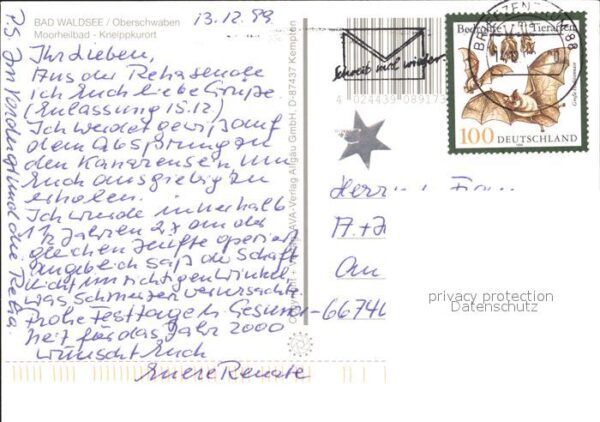 BAD WALDSEE / Oberschwaben
Moorheilbad - Kneippkurort
13.12.99
Ihr Lieben,
Aus der Reha sende
ich Euch liebe Grüße.
(Entlassung 15.12.)
Ihr werdet gewiß auf
dem Absprung zu
den Kanaren sein um
Euch ausgiebig zu
erholen.
Ich wurde innerhalb
1½ Jahren 2x an der
gleichen Hüfte operiert
angeblich saß der Schaft
nicht im richtigen Winkel
was Schmerzen verursachte.
Frohe Festtage u. Gesund-
heit für das Jahr 2000
wünscht Euch
Euere Renate
P.S. Im Vordergrund die Reha.
AVA-Verlag Allgäu GmbH, D-87437 Kempten
4 024439 089173
Schreib mal wieder
BRIEFZENTRUM 88
Bedrohte Tierarten
Große Hufeisennase
100 DEUTSCHLAND
Herrn u. Frau
A. + H
Am
66740
privacy protection
Datenschutz